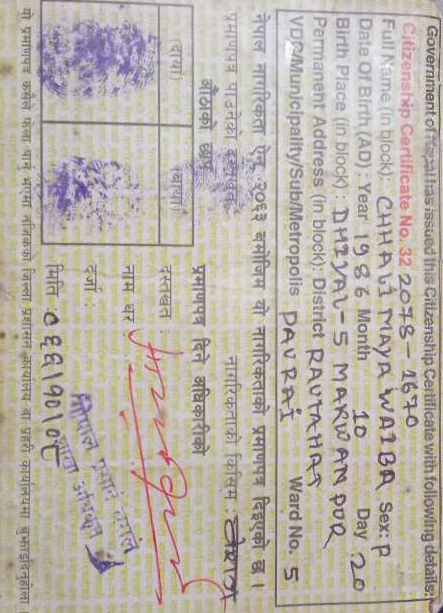 Government of Nepal has issued this Citizenship Certificate with following details:
Citizenship Certificate No. 32 2078-1670
Full Name (in block): CHHALI MAYA WAIBA Sex: P
Date Of Birth (AD): Year 1986 Month 10 Day 20
Birth Place (in block) : DHIYAL-5 MAKWANPUR
Permanent Address (in block): District RAUTAHAT
VDC/Municipality/Sub/Metropolis PAURAI Ward No. 5
नेपाल नागरिकता ऐन २०६३ बमोजिम यो नागरिकताको प्रमाणपत्र दिइएको छ ।
प्रमाणपत्र पाउनेको दस्तखत नागरिकताको किसिम :
औंठाको छाप
(दायाँ) (बायाँ)
प्रमाणपत्र दिने अधिकारीको
दस्तखत :
नाम थर
दर्जा :
मिति
यो प्रमाणपत्र कसैले फेला पारे आफ्नो नजिकको जिल्ला प्रशासन कार्यालय वा प्रहरी कार्यालयमा बुझाइदिनुहोला